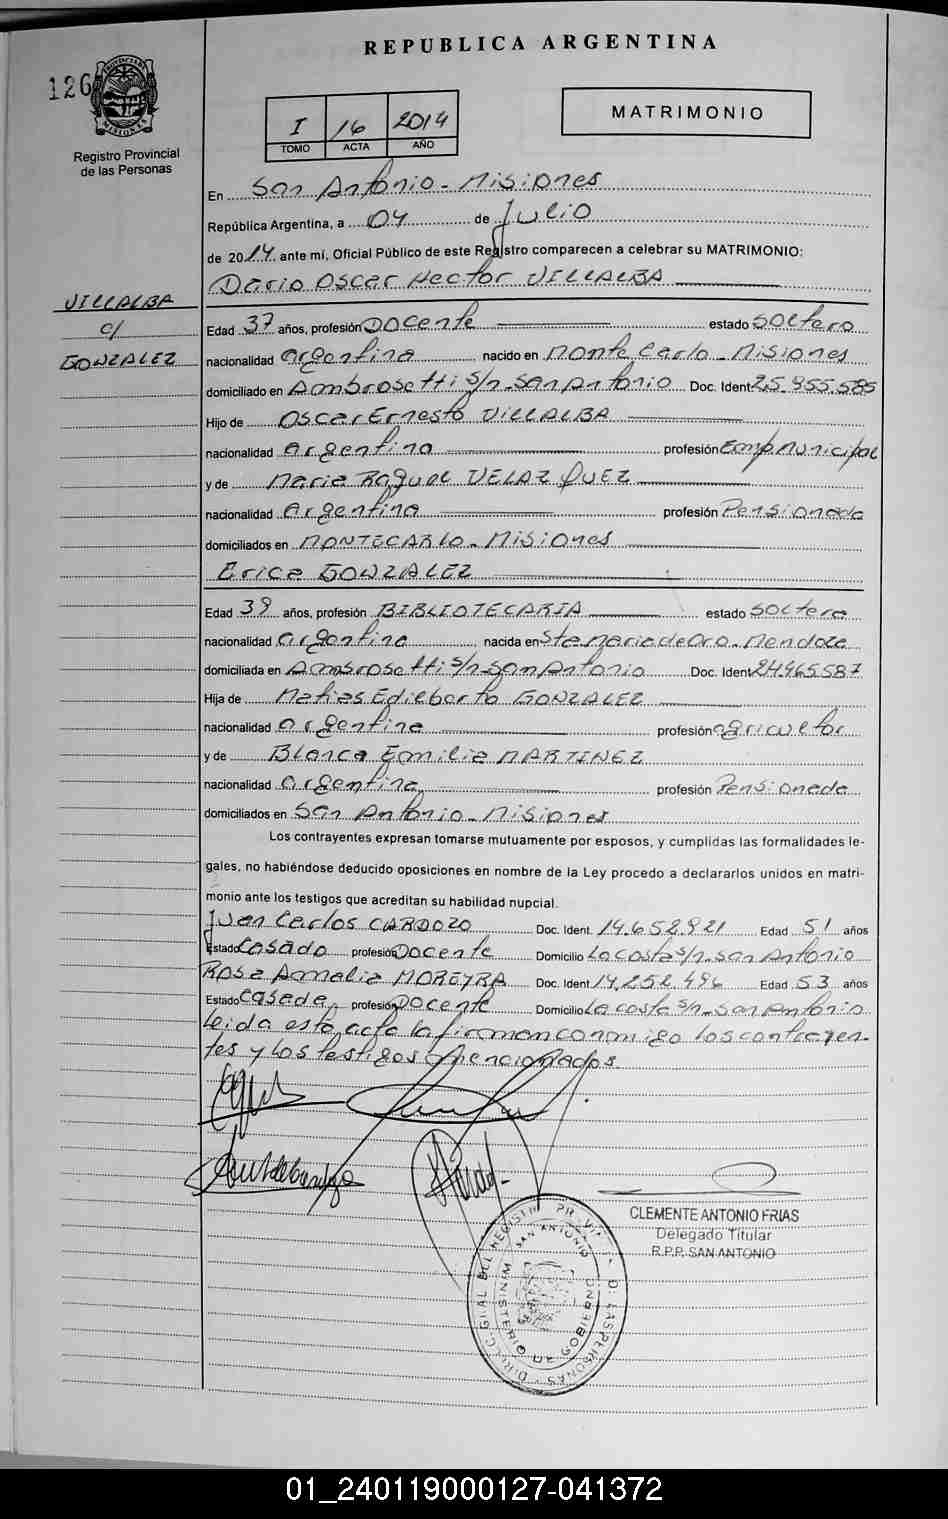 REPUBLICA ARGENTINA
126
Registro Provincial
de las Personas
I 16 2014
TOMO ACTA AÑO
MATRIMONIO
En San Antonio - Misiones
República Argentina, a 04 de Julio
de 2014 ante mí, Oficial Público de este Registro comparecen a celebrar su MATRIMONIO:
Dario Oscar Hector VILLALBA
VILLALBA
c/
GONZALEZ
Edad 37 años, profesión Docente estado soltero
nacionalidad argentina nacido en Monte Carlo - Misiones
domiciliado en Ambrosetti s/n - San Antonio Doc. Ident 25.955.585
Hijo de Oscar Ernesto VILLALBA
nacionalidad argentina profesión Emp. Municipal
y de Maria Raquel VELAZQUEZ
nacionalidad argentina profesión Pensionada
domiciliados en MONTECARLO - Misiones
Erica GONZALEZ
Edad 39 años, profesión BIBLIOTECARIA estado soltera
nacionalidad argentina nacida en Sta Maria de Oro - Mendoza
domiciliada en Ambrosetti s/n - San Antonio Doc. Ident 24.465.587
Hija de Matias Edilberto GONZALEZ
nacionalidad argentina profesión agricultor
y de Blanca Emilia MARTINEZ
nacionalidad argentina profesión Pensionada
domiciliados en San Antonio - Misiones
Los contrayentes expresan tomarse mutuamente por esposos, y cumplidas las formalidades le-
gales, no habiéndose deducido oposiciones en nombre de la Ley procedo a declararlos unidos en matri-
monio ante los testigos que acreditan su habilidad nupcial.
Juan Carlos CARDOZO Doc. Ident. 14.652.921 Edad 51 años
Estado Casado profesión Docente Domicilio La costa s/n - San Antonio
Rosa Amalia MOREYRA Doc. Ident 14.252.496 Edad 53 años
Estado Casada profesión Docente Domicilio La costa s/n - San Antonio
Leida esta acta la firman conmigo los contrayen-
tes y los testigos mencionados.
CLEMENTE ANTONIO FRIAS
Delegado Titular
R.P.P. SAN ANTONIO
SAN ANTONIO
MINISTERIO DE GOBIERNO
01_240119000127-041372